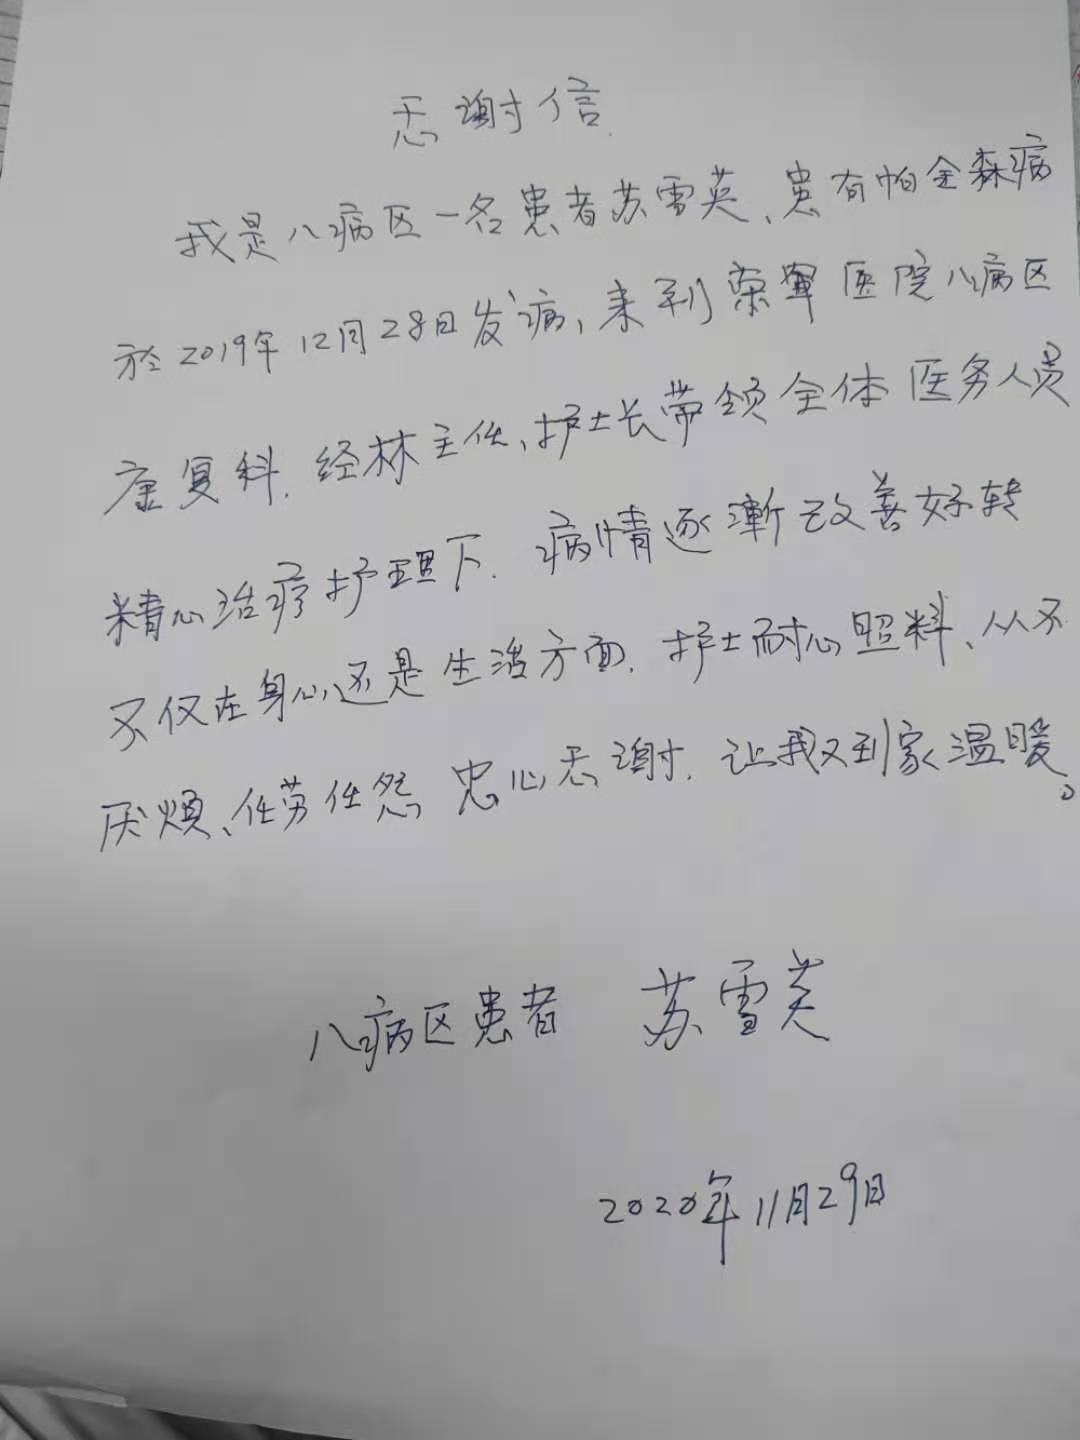 忎谢信.
我是八病区一名患者苏雪英、患有帕金森病
於2019年12月28日发病,来到荣军医院八病区
康复科.经林主任、护士长带领全体医务人员
精心治疗护理下.病情逐漸改善好转
不仅在身心还是生活方面.护士耐心照料、从不
厌烦、任劳任怨 忠心忎谢.让我又到家温暖。
八病区患者 苏雪英
2020年11月29日